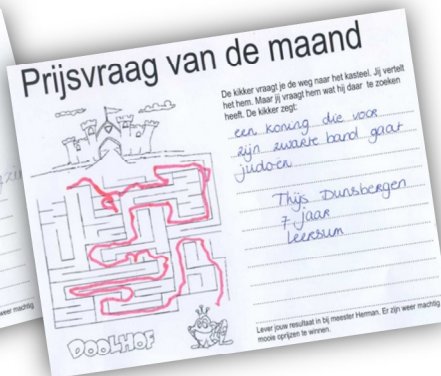 Prijsvraag van de maand
De kikker vraagt je de weg naar het kasteel. Jij vertelt
het hem. Maar jij vraagt hem wat hij daar te zoeken
heeft. De kikker zegt:
een koning die voor
zijn zwarte band gaat
judoën
Thijs Dunsbergen
7 jaar
Leersum
DOOLHOF
Lever jouw resultaat in bij meester Herman. Er zijn weer machtig
mooie oprijzen te winnen.
weer machtig